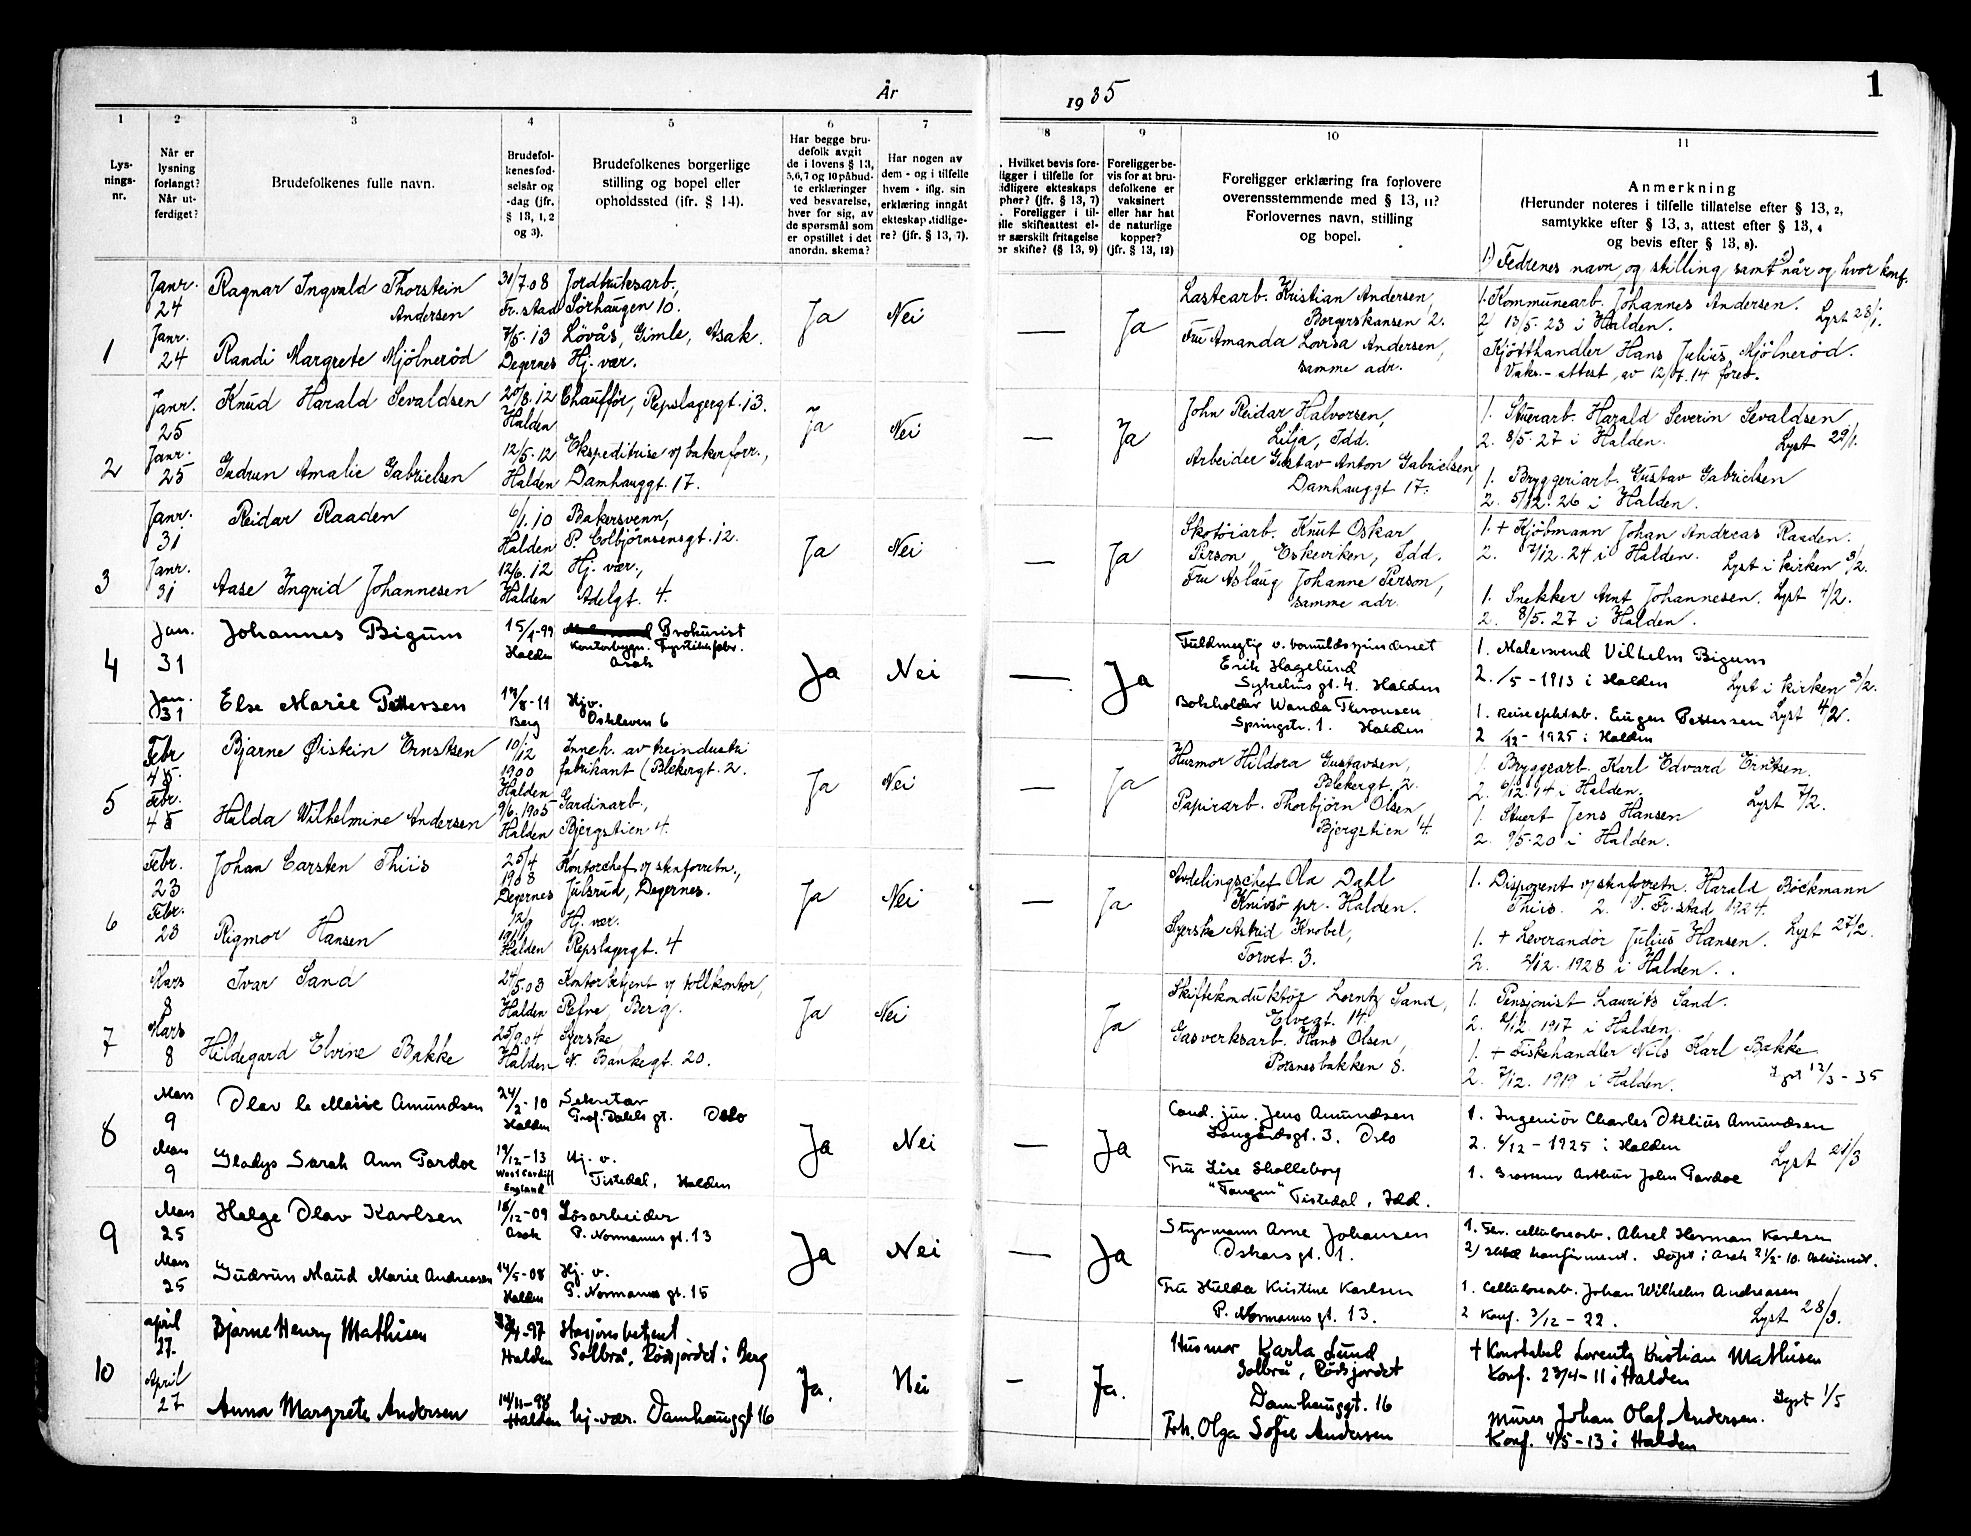 År 1935
1
1
2
3
4
5
6
7
8
9
10
11
Lys-
nings-
nr.
Når er
lysning
forlangt?
Når ut-
ferdiget?
Brudefolkenes fulle navn.
Brudefol-
kenes fød-
selsår og
-dag (jfr.
§ 13, 1, 2
og 3).
Brudefolkenes borgerlige
stilling og bopel eller
opholdssted (jfr. § 14).
Har begge bru-
defolk avgit
de i lovens § 13,
5, 6, 7 og 10 påbud-
te erklæringer
ved besvarelse,
hver for sig, av
de spørsmål som
er opstillet i det
anordn. skema?
Har nogen av
dem - og i tilfelle
hvem - iflg. sin
erklæring inngåt
ekteskap tidlige-
re? (jfr. § 13, 7).
. Hvilket bevis fore-
ligger i tilfelle for
idligere ekteskaps
phør? (jfr. § 13, 7)
. Foreligger i til-
elle skifteattest el-
er særskilt fritagelse
or skifte? (§ 13, 9)
Foreligger be-
vis for at bru-
defolkene er
vaksinert
eller har hat
de naturlige
kopper?
(jfr. § 13, 12)
Foreligger erklæring fra forlovere
overensstemmende med § 13, 11?
Forlovernes navn, stilling
og bopel.
Anmerkning
(Herunder noteres i tilfelle tillatelse efter § 13, 2,
samtykke efter § 13, 3, attest efter § 13, 4
og bevis efter § 13, 8).
1) Fedrenes navn og stilling samt 2) når og hvor konf.
1
Janr.
24
Ragnar Ingvald Thorstein
Andersen
31/7.08
Fr.stad
Jordbuksarb.,
Sørhaugen 10.
Janr.
24
Randi Margrete Mjölneröd
7/5.13
Degernes
Lövås, Gimle, Asak.
Hj. vær.
Ja
Nei
—
Ja
Lastearb. Kristian Andersen,
Borgerskansen 2.
Fru Amanda Lovisa Andersen,
samme adr.
1. Kommunearb. Johannes Andersen.
2 13/5.23 i Halden.
Lyst 28/1.
Kjötthandler Hans Julius Mjölneröd.
Vaks.- attest av 12/7.14 forev.
2
Janr.
25
Knud Harald Sevaldsen
20/8.12
Halden
Chaufför, Repslagergt. 13.
Janr.
25
Gudrun Amalie Gabrielsen
12/5.12
Halden
Ekspeditrise v/ bakerforr.,
Damhauggt. 17.
Ja
Nei
—
Ja
John Reidar Halvorsen,
Lilja, Idd.
Arbeider Gustav Anton Gabrielsen,
Damhauggt 17.
1. Stuerarb. Harald Severin Sevaldsen
2. 8/5.27 i Halden.
Lyst 29/1.
1. Bryggeriarb. Gustav Gabrielsen
2. 5/12.26 i Halden.
3
Janr.
31
Reidar Raaden
6/1.10
Halden
Bakersvenn,
P. Colbjörnsensgt. 12.
Janr.
31
Aase Ingrid Johannesen
12/6.12
Halden
Hj. vær.,
Adelgt. 4.
Ja
Nei
—
Ja
Skotöiarb. Knut Oskar
Person, Eskeviken, Idd.
Fru Aslaug Johanne Person,
samme adr.
1. + Kjöbmann Johan Andreas Raaden.
2. 7/12.24 i Halden.
Lyst i kirken 3/2.
1. Snekker Arnt Johannesen. Lyst 4/2.
2. 8/5.27 i Halden.
4
Jan.
31
Johannes Bigum
15/1-99
Halden
Prokurist
Asak
Jan.
31
Else Marie Pettersen
17/8-11
Berg
Hj.v.
Oskleven 6
Ja
Nei
—
Ja
Fuldmegtig v. bomuldsspinderiet
Erik Hagelund
Sykehus gt. 4. Halden
Bokholder Wanda Thronsen
Springstr. 1. Halden
1. Malersvend Vilhelm Bigum
2. /5 - 1913 i Halden
Lyst i kirken 3/2.
1. Reiseefektarb. Eugen Pettersen Lyst 4/2.
2 /12 - 1925 i Halden
5
Febr
4
Bjarne Øistein Ernstsen
10/12
1900
Halden
Inneh. av treindustri
fabrikant (Blekergt. 2.
Febr.
4
Halda Wilhelmine Andersen
9/6.1905
Halden
Gardinarb.,
Bjergstien 4.
Ja
Nei
—
Ja
Husmor Hildora Gustavsen,
Blekergt. 2.
Papirarb. Thorbjörn Olsen,
Bjergstien 4.
1. Bryggearb. Karl Edvard Erntsen.
2. 6/12.14 i Halden.
Lyst 7/2.
1. Stuert Jens Hansen
2. 9/5-20 i Halden.
6
Febr.
23
Johan Carsten Thiis
25/4
1908
Degernes
Kontorchef v/ stenforretn.,
Julsrud, Degernes.
Febr.
23
Rigmor Hansen
12/9
1911
Halden
Hj. vær.
Repslagergt. 4
Ja
Nei
—
Ja
Avdelingschef Ola Dahl
Knivsö pr. Halden.
Syerske Astrid Knobel,
Torvet 3.
1. Disponent v/ stenforretn. Harald Böckmann
Thiis. 2. V. Fr.stad 1924.
Lyst 27/2.
1. + Leverandör Julius Hansen.
2. 2/12.1928 i Halden.
7
Mars
8
Ivar Sand
24/5.03
Halden
Kontorbetjent v/ tollkontor,
Refne, Berg.
Mars
8
Hildegard Elvine Bakke
25/9.04
Halden
Syerske,
N. Bankegt. 20.
Ja
Nei
Ja
Skiftekonduktör Lorntz Sand,
Elvegt. 14.
Gasverksarb. Hans Olsen,
Posnesbakken 8.
1. Pensjonist Laurits Sand.
2. 2/12.1917 i Halden.
1. + Fiskehandler Nils Karl Bakke
2. 7/12.1919 i Halden.
Lyst 12/3 - 35
8
Mars
9
Olav le Maire Amundsen
24/2-10
Halden
Sekretær
Prof. Dahls gt. Oslo
Mars
9
Gladys Sarah Ann Pardoe
19/12-13
West Cardiff
England
Hj. v.
Tistedal, Halden
Ja
Nei
—
Ja
Cand. jur. Jens Amundsen
Langårdsgt. 3. Oslo
Fru Lise Skolleborg
"Tangen" Tistedal, Idd.
1. Ingeniör Charles Otelius Amundsen
2. 6/12 - 1925 i Halden
Lyst 21/3
1. Arthur John Pardoe
9
Mars
25
Helge Olav Karlsen
18/12-09
Asak
Lösarbeider
P. Normanns gt. 13
Mars
25
Gudrun Maud Marie Andreasen
14/5-08
Halden
Hj. v.
P. Normanns gt. 15
Ja
Nei
—
Ja
Styrmann Arne Johansen
Oskars gt. 1.
Fru Hulda Kristine Karlsen
P. Normanns gt. 13.
1. Cellulosearb. Aksel Herman Karlsen
2) Ikke konfirmert. Döpt i Asak 2/2-10.
1. Cellulosearb. Johan Wilhelm Andreasen
2 Konf. 3/12 - 22.
Lyst 28/3.
10
april
27.
Bjarne Henry Mathisen
/4-97
Halden
Stasjonsbetjent
Solbrå, Rödsjordet i Berg
April
27
Anna Margrete Andersen
14/11-98
Halden
hj.-vær. Damhauggt 16
Ja.
Nei
—
Ja.
Husmor Karla Lund
Solbrå, Rödsjordet
Damhauggt. 16
Frk. Olga Sofie Andersen
+ Konstabel Lorentz Kristian Mathisen
Konf. 23/4-11 i Halden
Lyst 1/5
Murer Johan Olaf Andersen.
Konf. 4/5-13 i Halden